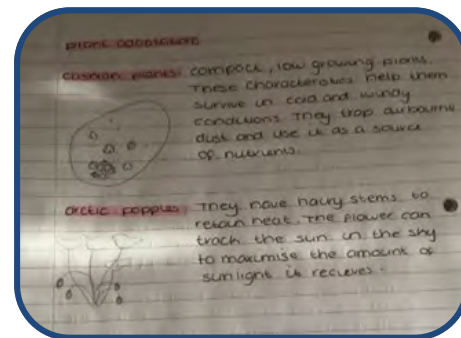 plant adaptations
cushion plants: compact, low growing plants.
These characteristics help them
survive in cold and windy
conditions. They trap airbourne
dust and use it as a source
of nutrients.
arctic poppies: They have hairy stems to
retain heat. The flower can
track the sun in the sky
to maximise the amount of
sunlight it recieves.